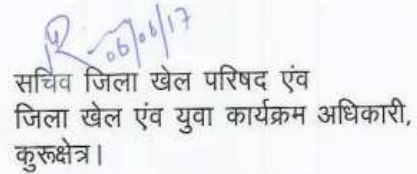 06/06/17
सचिव जिला खेल परिषद एंव
जिला खेल एंव युवा कार्यक्रम अधिकारी,
कुरूक्षेत्र।